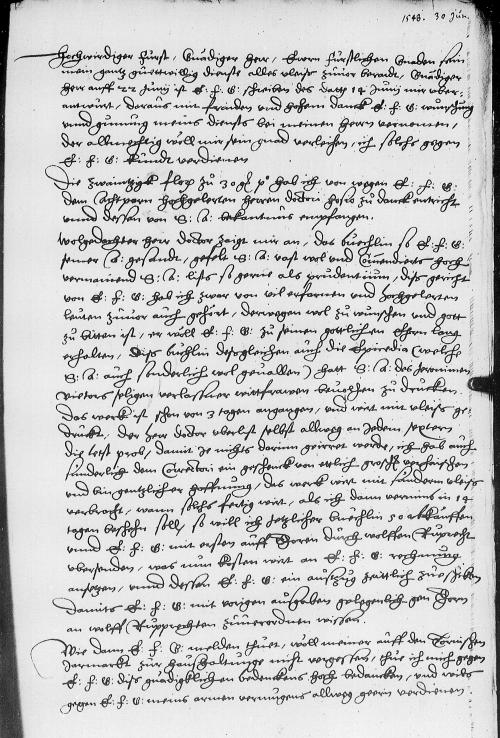 1548. 30 Jun.
Hochwirdiger Furst, Gnädiger Herr, Ewrn Fürstlichen Gnaden sein
mein gantz guettwillig dienste alles vleiss zuuor beraidt, Gnädiger
Herr auff 22 Junij ist E. F. G. schreiben des datto 14 Junij mir uber-
antwurt, daraus mit freuden und hohem danck E. F. G. wunschung
unnd gunnung meins diensts bei meinem Herrn vernomen,
der allmechtig wöll mir sein gnad verleihen, ich solchs gegen
E. F. G. kündt verdienen
Die zwaintzigk flor zu 30 g hab ich von wegen E. F. G.
dem achtparn hochgelerten Herren doctori Hosio zu danck entricht
unnd dessen von S. A. bekantnus empfangen.
Wolgedachter Herr doctor zaigt mir an, das büechlin so E. F. G.
seiner A. gesandt, gefelt S. A. vast wol und hoch-
vermainend S. A. liss so gerne als prudentium, diss gericht
von E. F. G. hab ich zwar von vil erfarnen und hochgelerten
leuten zuuor auch gehört, derwegen wol zu wunschen und gott
zu bitten ist, er wöll E. F. G. zu seinen gottlichen Ehern lang
erhalten, diss büchlin dessgleichen auch die (welche
S. A. auch sonderlich wol geuallen) hatt S. A. des Jeronimen
vietors seligen verlassner wittfrawen beuolhen zu drucken.
Das werck ist schon vor 3 tagen angangen, und wirt mit vleiss ge-
druckt, der Herr doctor uberlist selbst allweg an jedem
die letst prob, damit je nichts darinn geirret werde, ich hab auch
sunderlich dem Correctori ein geschenck von etlich groschen verhaischen
und bin gentzlicher hoffnung, das werck wirt mit sunderm vleiss
verbrocht, wann solchs fertig wirt, als ich dann vernims in 14
tagen beschehen soll, so will ich jetzlicher büechlin 50 abkauffen
unnd E. F. G. mit ersten auff Thoren durch wolffen Ruprecht
ubersenden, was nun kosten wirt an E. F. G. rechnung
ansetzen, unnd dessen E. F. G. ein ausszug zeittlich zueschiken
damits E. F. G. mit vorigen aussgeben gelegenlich gen Thorn
an wolff Rupprechten zuuerordnen wissen.
Wie dann E. F. G. melden thuet, wöll meiner auff den
Jarmarkt zur hausshaltunge nicht vergessen, thue ich mich gegen
E. F. G. diss gnädigklichen bedenckens hoch bedancken, und wils
gegen E. F. G. meins armen vermugens allweg geern verdienen